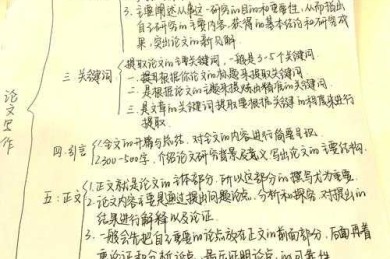 3. 主要阐述从事这一研究的目的和重要性,从而指出
自己研究的主要内容,获得的基本结论和研究成
果,突出论文的新见解.
三.关键词
提取论文的主要关键词,一般是3-5个关键词
一.提来根据你论文的标题来提取关键词
二.是根据论文主题来提炼出精准的关键词
三.是文章的关键词提取要根据关键词的频率来进行
提取.
论文写作
四.引言
1.全文的开篇与总括,对全文的内容进行简要呈现.
2.300-500字,介绍论文研究背景及意义,写出论文的主要结构.
五:正文
1.正文就是论文的主体部分,所以这部分的撰写尤为重要.
2.论文内容主要是通过提出问题论点,分析和探究,对提出的
结果进行解释以及论证.
3.一般会先把自己重要的论点放在正文的前面部分,后面再着
重论证和分析论点,最后证明论点的可靠性